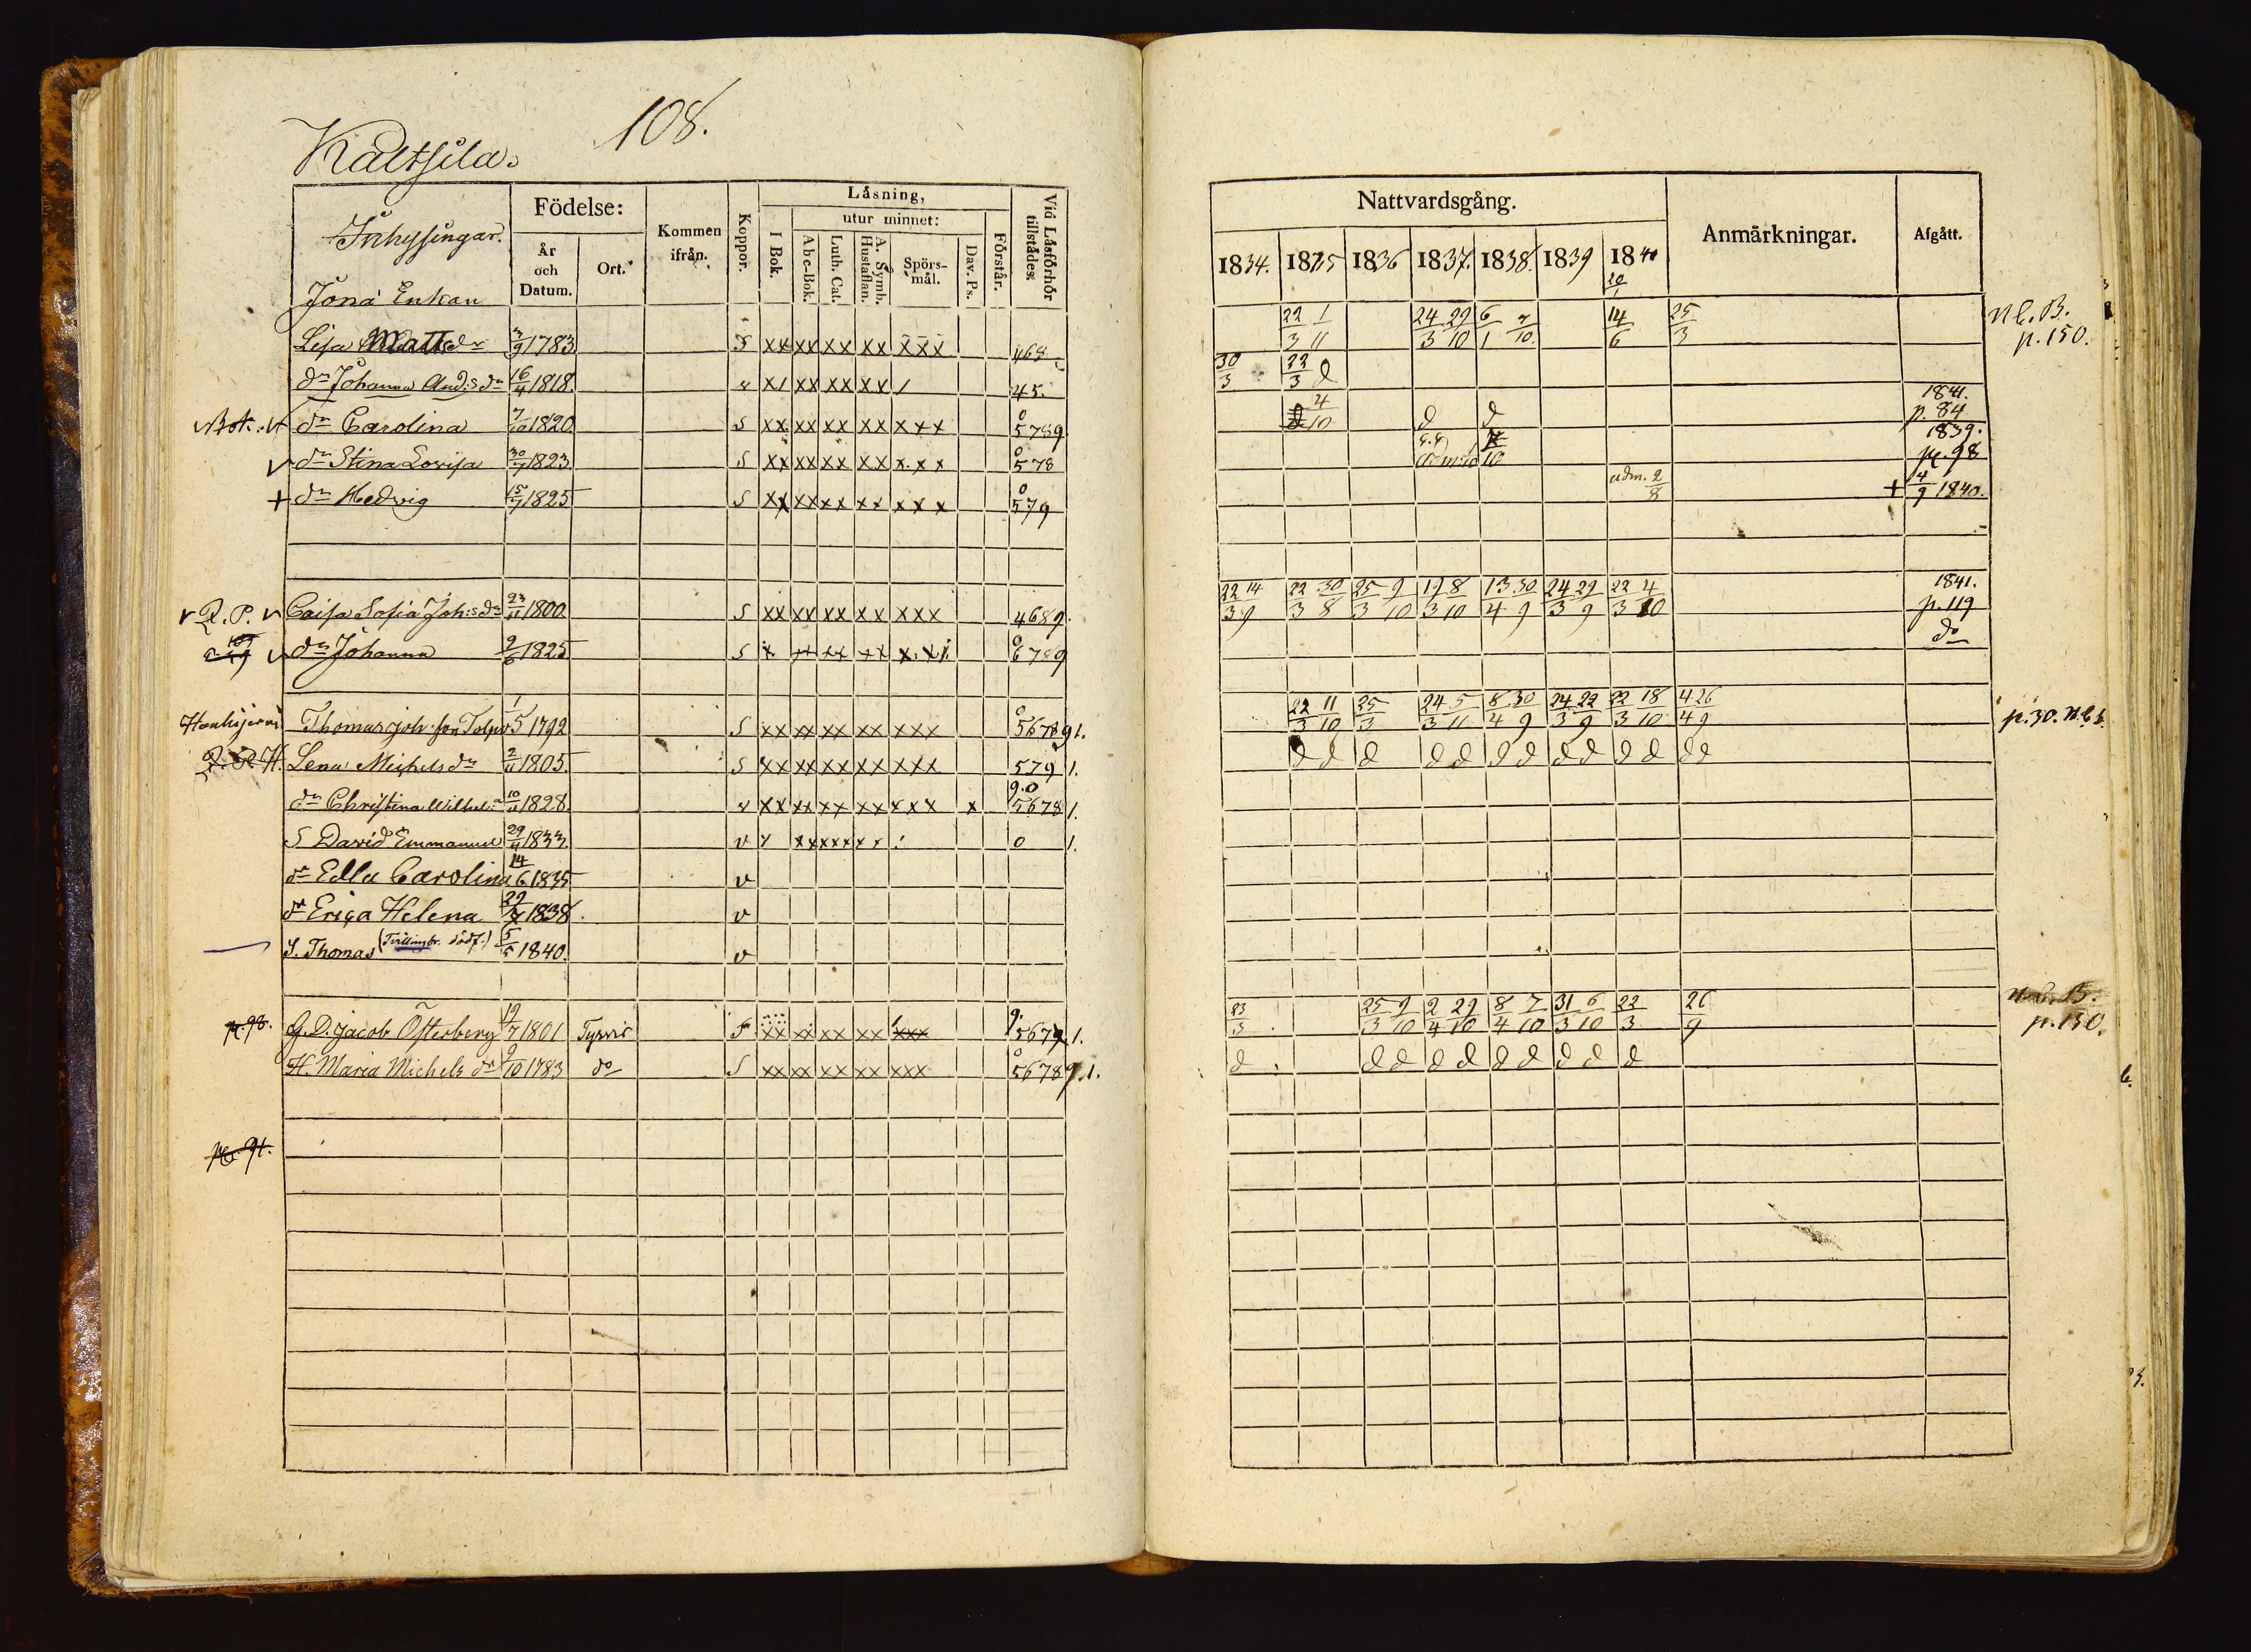 108.
Kaltsila.
Inhysingar.
Födelse:
År och Datum.
Ort.
Kommen ifrån.
Koppor.
Läsning,
I Bok.
utur minnet:
Abc-Bok.
Luth. Cat.
A. Symb. Hustaflan.
Spörsmål.
Dav. Ps.
Förstår.
Vid Läsförhör tillstädes:
Jona Enkan
Lisa Matts dr 3/9 1783 S xx xx xx xx xxx 468
dr Johanna And:s dr 16/4 1818. v x/ xx xx xx / 45.
dr Carolina 7/10 1820 S xx xx xx xx xxx 0 5789
dr Stina Lovisa 30/7 1823 S xx xx xx xx x.xx 0 578
+ dr Hedvig 15/7 1825 S xx xx xx xx xxx 0 579
R. P. Caisa Sofia Joh:s dr 23/11 1800 S xx xx xx xx xxx 4689.
dr Johanna 2/6 1825 S x xx xx xx x.x/. 0 6789
Thomas Joh:son 1/5 1792 S xx xx xx xx xxx 0 56789 1.
Lena Michels dr 2/11 1805. S xx xx xx xx xxx 579 1.
dr Christina Wilhel:a 10/11 1828. v xx xx xx xx xxx x 9.0 5678 1.
S David Emmanuel 29/4 1833. v 0 1.
dr Edla Carolina 14/6 1835 v
dr Erica Helena 29/7 1838. v
S. Thomas (Tvillingbr. dödf.) 5/5 1840. v
p. 98. G. D. Jacob Österberg 19/7 1801 Tyrvis F xx xx xx xx xxx 9. 5679 1.
H. Maria Michels dr 9/10 1783 do S xx xx xx xx xxx 0 56789.1.
p. 91.
Nattvardsgång.
Anmärkningar.
Afgått.
1834. 1835 1836 1837. 1838. 1839 1840
22/3 1/11 24/3 29/10 6/1 7/10 14/6 25/3 p. 150.
30/3 22/3 d
4/10 d d 1841. p. 84
adm. 1839. p. 98
adm. 2/8 + 4/9 1840.
22/3 14/9 22/3 30/8 25/3 9/10 19/3 8/10 13/4 30/9 24/3 29/9 22/3 4/10 1841. p. 119
do
22/3 11/10 25/3 24/3 5/11 8/4 30/9 24/3 22/9 22/3 18/10 4/4 26/9 p. 30.
d d d d d d d d d d d d d
23/3 25/3 9/10 2/4 29/10 8/4 7/10 31/3 6/10 22/3 26/9 p. 150.
d d d d d d d d d d